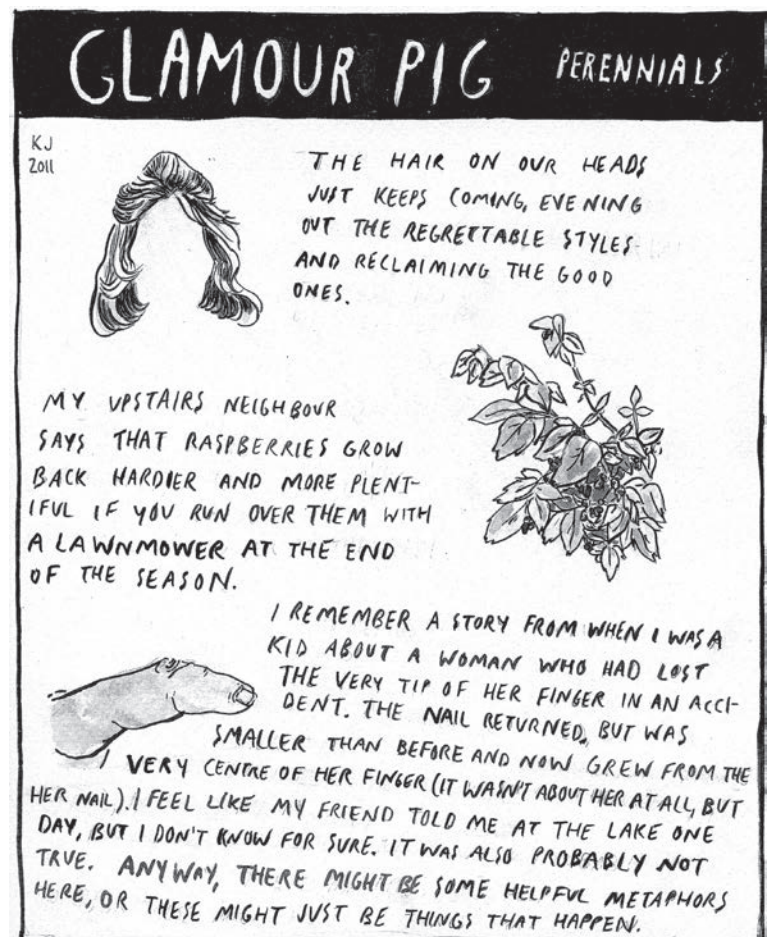 GLAMOUR PIG PERENNIALS
KJ
2011
THE HAIR ON OUR HEADS
JUST KEEPS COMING, EVENING
OUT THE REGRETTABLE STYLES
AND RECLAIMING THE GOOD
ONES.
MY UPSTAIRS NEIGHBOUR
SAYS THAT RASPBERRIES GROW
BACK HARDIER AND MORE PLENT-
IFUL IF YOU RUN OVER THEM WITH
A LAWNMOWER AT THE END
OF THE SEASON.
I REMEMBER A STORY FROM WHEN I WAS A
KID ABOUT A WOMAN WHO HAD LOST
THE VERY TIP OF HER FINGER IN AN ACCI-
DENT. THE NAIL RETURNED, BUT WAS
SMALLER THAN BEFORE AND NOW GREW FROM THE
VERY CENTRE OF HER FINGER (IT WASN'T ABOUT HER AT ALL, BUT
HER NAIL). I FEEL LIKE MY FRIEND TOLD ME AT THE LAKE ONE
DAY, BUT I DON'T KNOW FOR SURE. IT WAS ALSO PROBABLY NOT
TRUE. ANYWAY, THERE MIGHT BE SOME HELPFUL METAPHORS
HERE, OR THESE MIGHT JUST BE THINGS THAT HAPPEN.